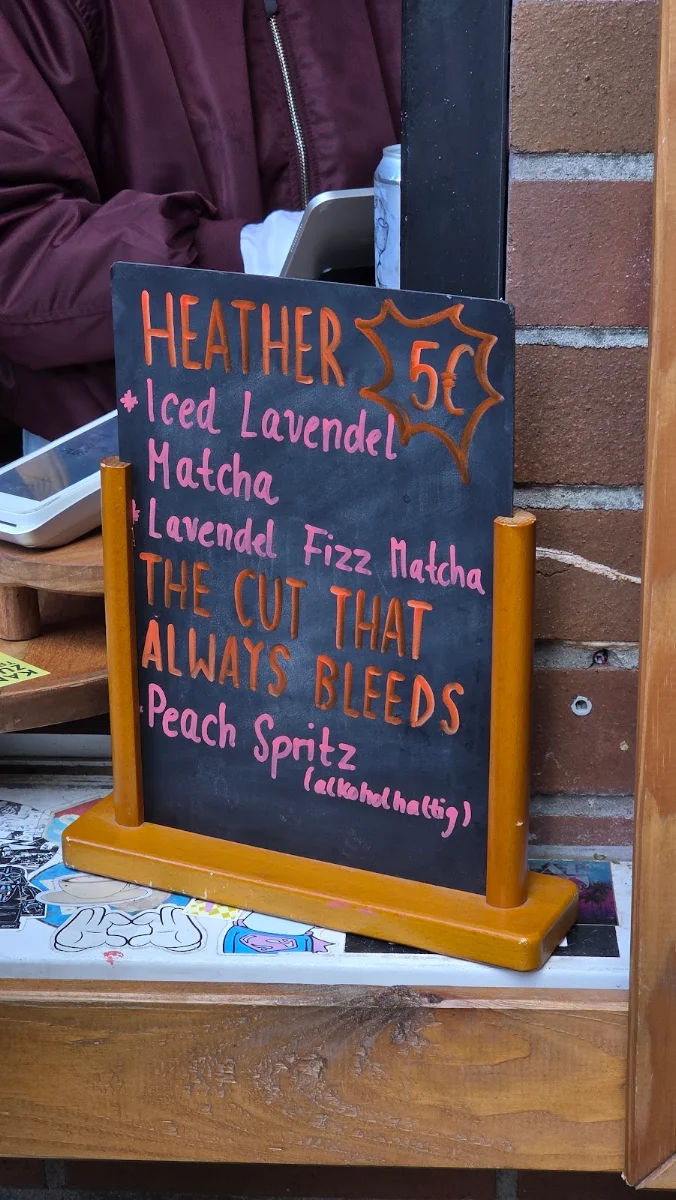 HEATHER 5€
* Iced Lavendel
Matcha
* Lavendel Fizz Matcha
THE CUT THAT
ALWAYS BLEEDS
Peach Spritz
(alkoholhaltig)